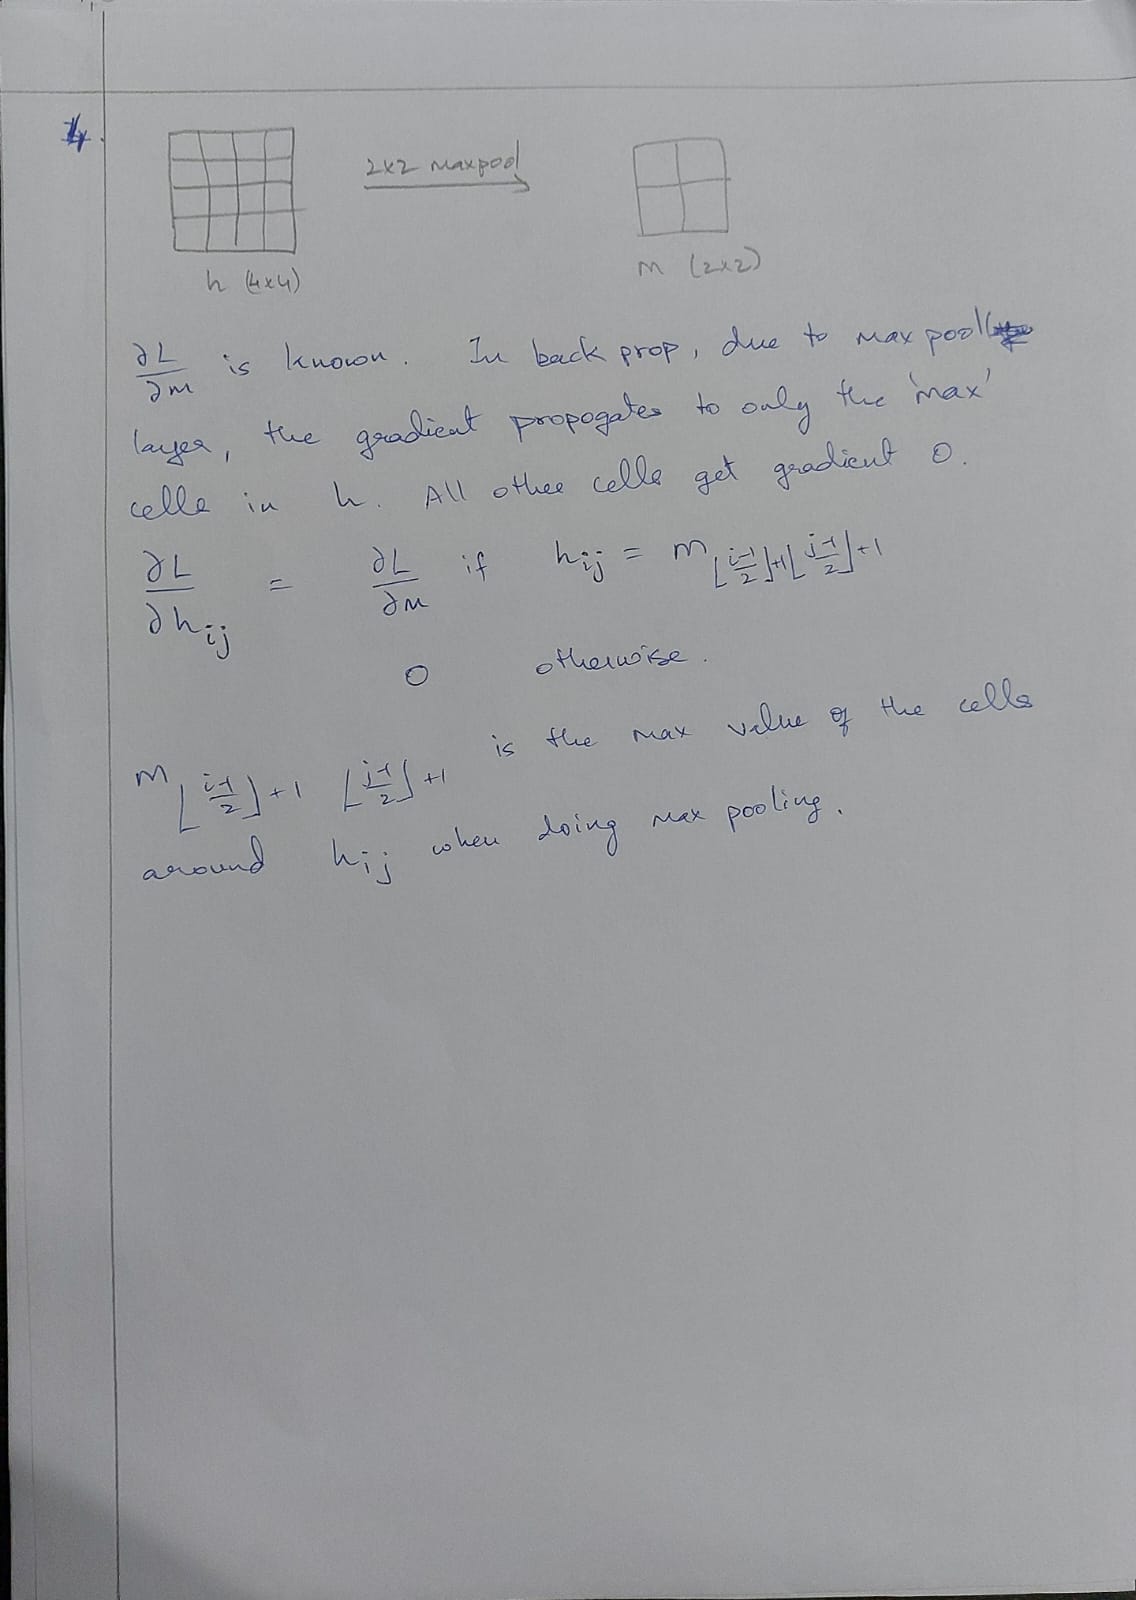 4.
2x2 maxpool
h (4x4)
m (2x2)
∂L/∂m is known. In back prop, due to max pool
layer, the gradient propogates to only the 'max'
cells in h. All other cells get gradient 0.
∂L/∂h_ij = ∂L/∂m if h_ij = m_⌊(i-1)/2⌋+1⌊(j-1)/2⌋+1
0 otherwise.
m_⌊(i-1)/2⌋+1 ⌊(j-1)/2⌋+1 is the max value of the cells
around h_ij when doing max pooling.